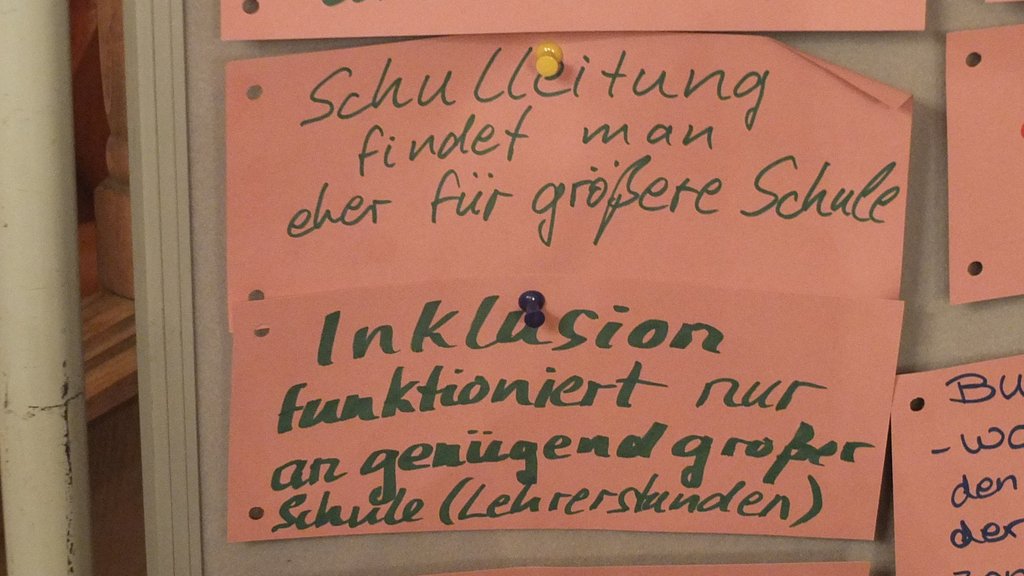 Schulleitung
findet man
eher für größere Schule
Inklusion
funktioniert nur
an genügend großer
Schule (Lehrerstunden)
BU
- wo
den
der